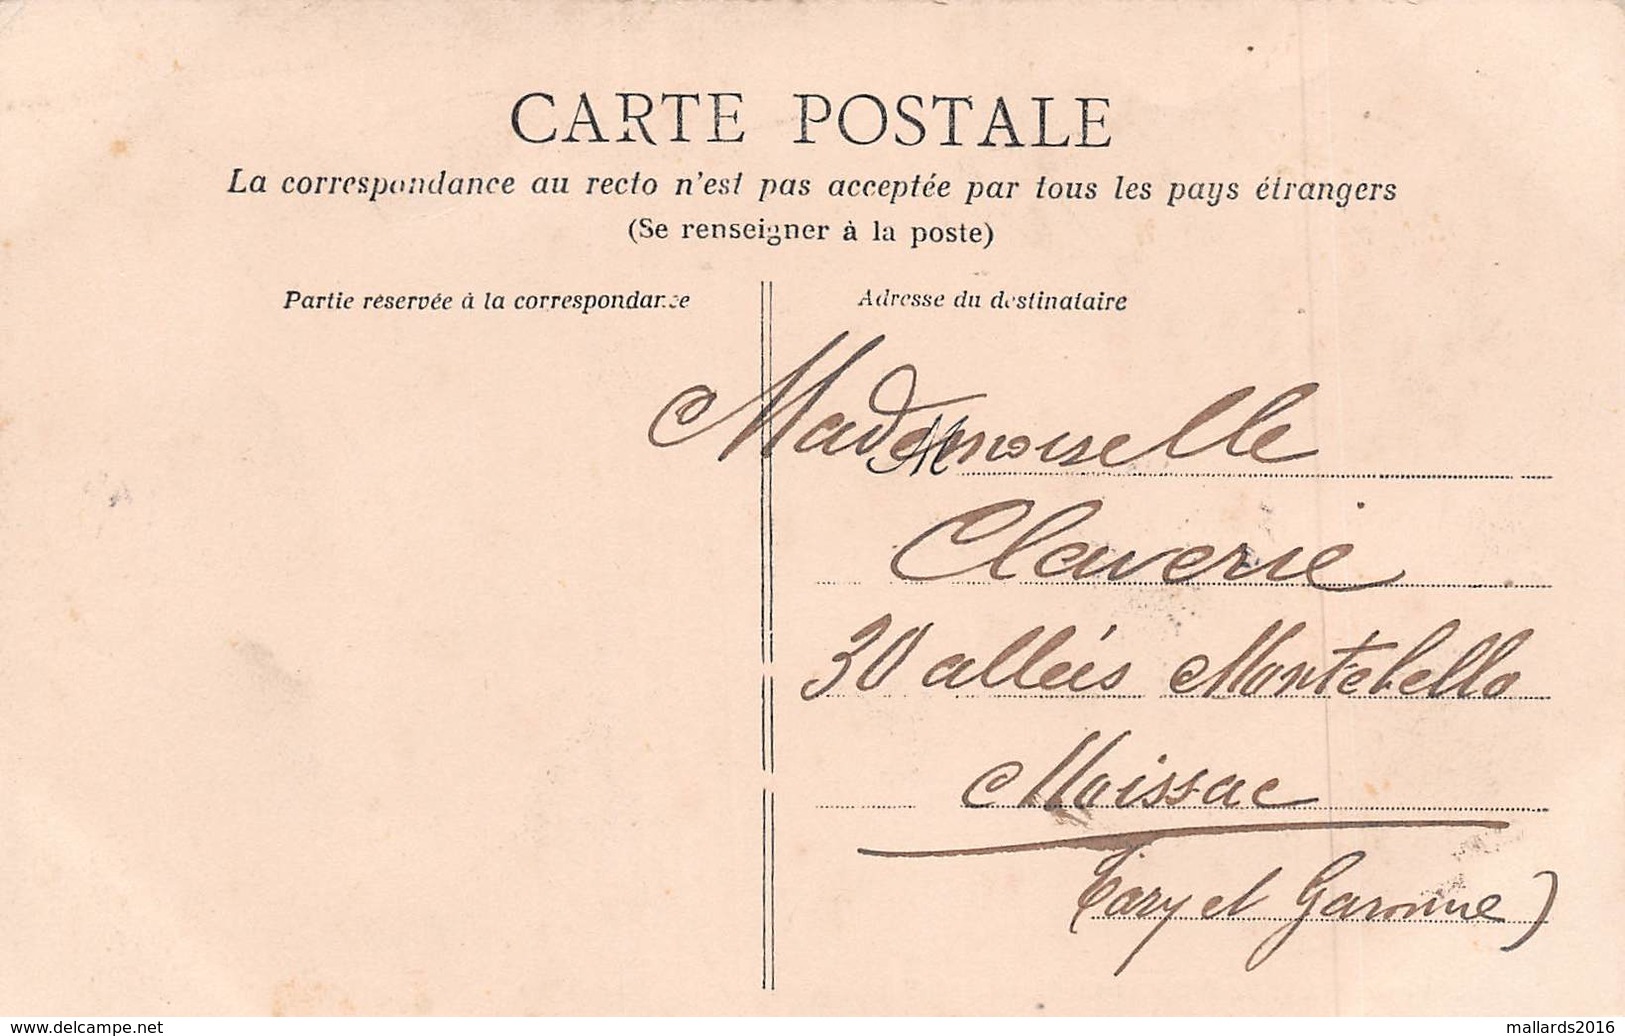 CARTE POSTALE
La correspondance au recto n'est pas acceptée par tous les pays étrangers
(Se renseigner à la poste)
Partie réservée à la correspondance
Adresse du destinataire
Mademoiselle
M
Claverie
30 allées Montebello
Moissac
Tarn et Garonne)
www.delcampe.net
mallards2016